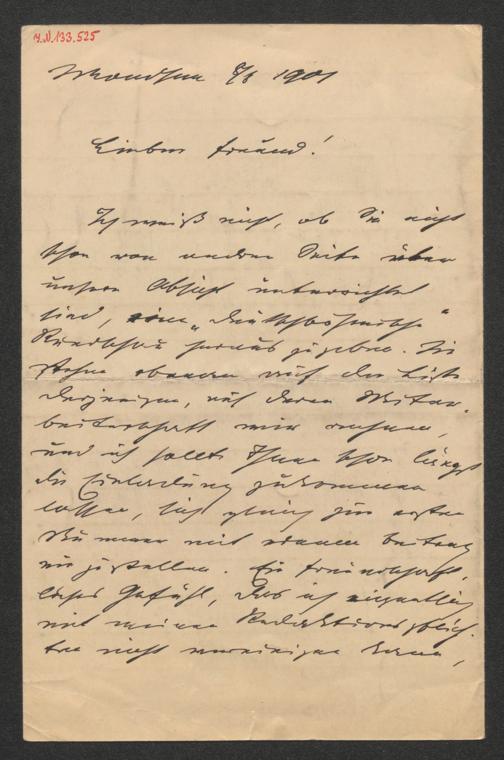 H.N.133.525
Mondsee 8/8 1901
Lieber Freund!
Ich weiß nicht, ob Sie nicht
schon von andrer Seite über
unsere Absicht unterrichtet
sind, eine „Deutschböhmische"
Rundschau herauszugeben. Sie
stehen obenan auf der Liste
derjenigen, auf deren Mitar-
beiterschaft wir rechnen,
und ich sollte Ihnen schon längst
die Einladung zukommen
lassen, sich gleich zur ersten
Nummer mit einem Beitrag
einzustellen. Ein freundschaft-
liches Gefühl, das ich eigentlich
mit meiner Redaktionspflich-
ten nicht vereinigen kann,